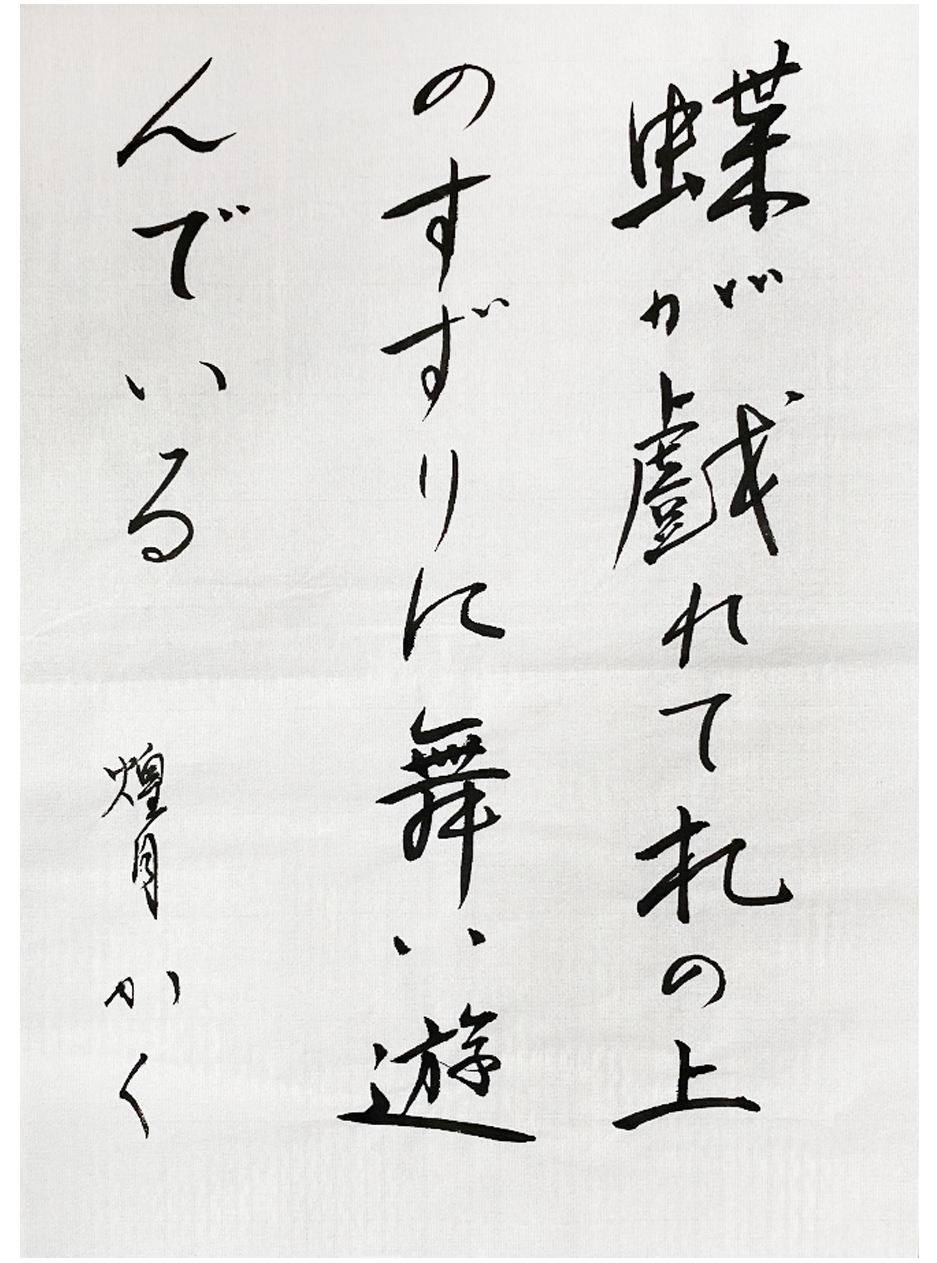 蝶が戲れて机の上
のすずりに舞い遊
んでいる 煌月かく